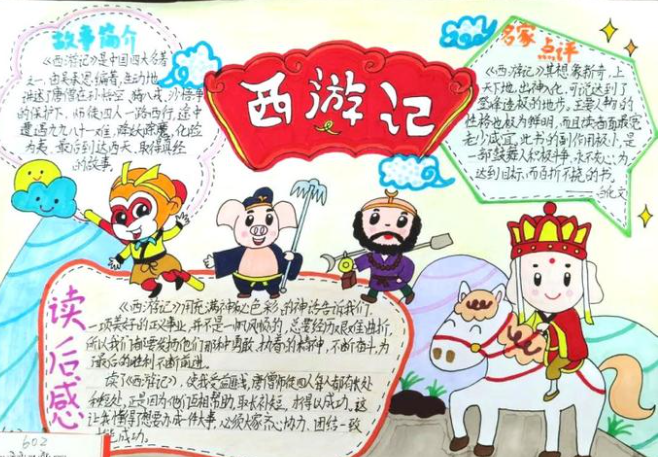 西游记
故事简介
《西游记》是中国四大名著
之一,由吴承恩编著,生动地
讲述了唐僧在孙悟空、猪八戒、沙悟净
的保护下,师徒四人一路西行,途中
遭遇九九八十一难,降妖除魔,化险
为夷,最后到达西天,取得真经
的故事。
名家点评
《西游记》其想象新奇,上
天下地,出神入化,可说达到了
登峰造极的地步。主要人物的
性格也极为鲜明,而且读者面最宽
老少咸宜,此书的副作用极小,是
一部鼓舞人积极斗争,永不灰心,为
达到目标,而百折不挠的书。
读后感
《西游记》用充满神秘色彩的神话告诉我们
一项美好的正义事业,并不是一帆风顺的,总要经历艰难曲折,
所以我们都要发扬他们那种勇敢、执着的精神,不断奋斗,为
最后的胜利不断前进。
读了《西游记》,使我受益匪浅,唐僧师徒四人每人都有长处
和短处,正是因为他们互相帮助,取长补短,才得以成功。这
让我懂得了想要办成一件大事,必须大家齐心协力,团结一致
才能成功。
602